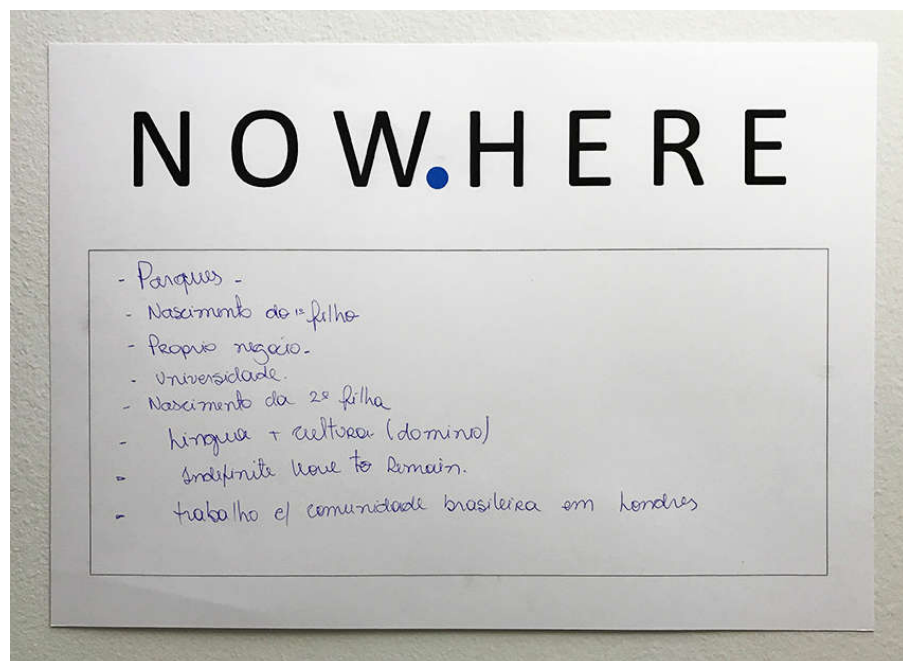 NOW.HERE
- Parques -
- Nascimento do 1º filho
- Proprio negocio.
- Universidade.
- Nascimento da 2ª filha
- Lingua + cultura (dominio)
- Indefinite Leave to Remain.
- trabalho c/ comunidade brasileira em Londres